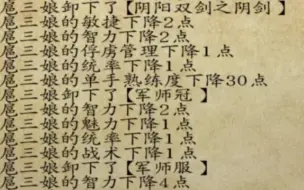 扈三娘卸下了【阴阳双剑之阴剑】
扈三娘的敏捷下降2点
扈三娘的智力下降2点
扈三娘的俘虏管理下降1点
扈三娘的统率下降1点
扈三娘的单手熟练度下降30点
扈三娘卸下了【军师冠】
扈三娘的智力下降2点
扈三娘的魅力下降1点
扈三娘的统率下降1点
扈三娘的战术下降1点
扈三娘卸下了【军师服】
扈三娘的智力下降4点